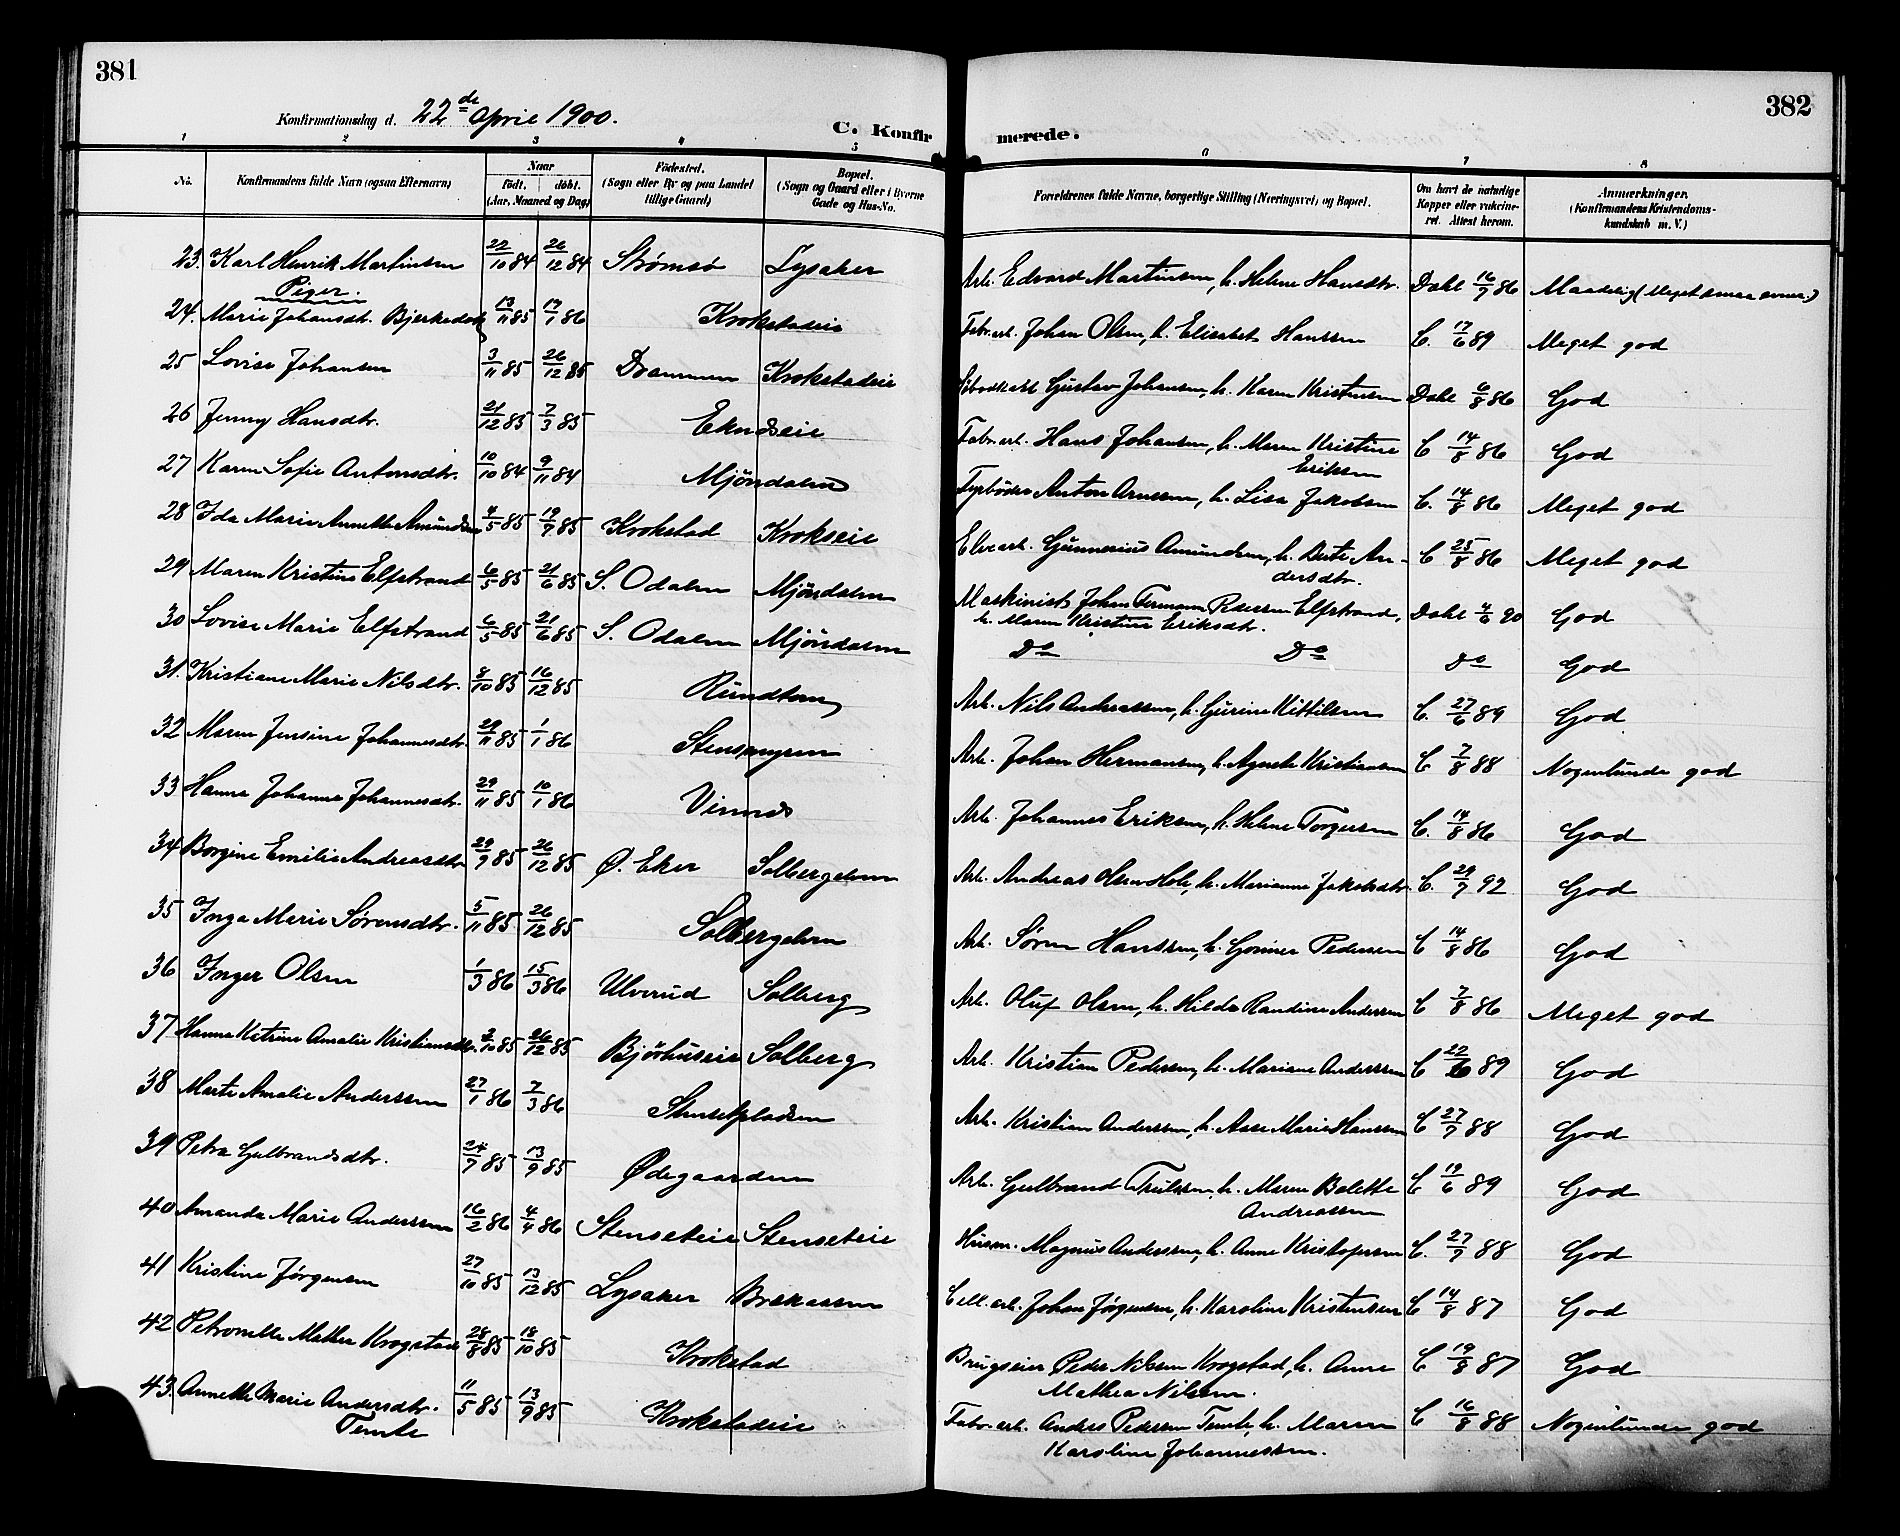 381
382
Konfirmationsdag d. 22de April 1900.
C. Konfir merede.
1 2 3 4 5 6 7 8
No. Konfirmandens fulde Navn (ogsaa Efternavn) Naar födt. döbt. (Aar, Maaned og Dag) Födested. (Sogn eller By og paa Landet tillige Gaard) Bopæl. (Sogn og Gaard eller i Byerne Gade og Hus-No. Forældrenes fulde Navne, borgerlige Stilling (Næringsvei) og Bopæl. Om havt de naturlige Kopper eller vakcineret. Attest herom. Anmærkninger, (Konfirmandens Kristendomskundskab m. V.)
23. Karl Henrik Martinsen 29/10 84 26/12 84 Strømsø Lysaker Arb. Edvard Martinsen, h. Helene Hansdtr. Dahl 16/7 86 Maadelig (Meget smaa evner.)
Piger.
24. Marie Johansdt. Bjerkedok 13/11 85 17/1 86 Krokstadeie Fabr.arb. Johan Olsen, h. Elisabet Hanssen C. 17/6 89 Meget god
25 Lovise Johansen 3/11 85 26/12 85 Drammen Krokstadeie Gustav Johansen, h. Karen Kristensen Dahl 6/8 86 God
26 Jenny Hansdtr. 21/12 85 7/3 85 Eknæseie Fabr.arb. Hans Johansen, h. Maren Kristine Eriksen C 14/8 86 God
27 Karen Sofie Antonsdtr. 10/10 84 9/11 84 Mjøndalen Fyrbøder Anton Arnesen, h. Lisa Jakobsen C. 14/8 86 Meget god
28 Ida Marie Annette Amundsen 4/5 85 19/7 85 Krokstad Krokseie Elvearb. Gunnerius Amundsen, h. Berte Andersdtr. C 25/8 86 Meget god
29 Maren Kristine Elfstrand 6/5 85 21/6 85 S. Odalen Mjøndalen Maskinist Johan Elfstrand, h. Maren Kristine Eriksdtr. Dahl 4/6 90 God
30 Lovise Marie Elfstrand 6/5 85 21/6 85 S. Odalen Mjøndalen Do Do do God
31. Kristiane Marie Nilsdtr. 8/10 85 16/12 85 Rundtom Arb. Nils Andreassen, h. Gurine Kittilsen C. 27/6 89 God
32 Maren Jensine Johannesdtr. 29/11 85 1/1 86 Stensmyren Arb. Johan Hermansen, h. Agnete Kristiansen C 7/8 88 Nogenlunde god
33 Hanna Johanne Johannesdtr. 29/11 85 10/1 86 Vinnes Arb. Johannes Eriksen, h. Helene Torgersen C. 14/8 86 God
34 Borgine Emilie Andreasdtr 29/9 85 26/12 85 Ø. Eker Solbergelven Arb. Andreas Olsen Hole, h. Marianne Jakobsdtr. C. 29/7 92 God
35 Inga Marie Sørensdtr. 5/11 85 26/12 85 Solbergelven Arb. Søren Hanssen, h. Gorine Pedersen C 14/8 86 God
36 Inger Olsen 1/3 86 15/3 86 Ulverud Solberg Arb. Oluf Olsen, h. Hilda Randine Andersen C 7/8 86 Meget god
37 Hanna Katrine Amalie Kristiansdtr. 2/10 85 26/12 85 Bjørhuseie Solberg Arb. Kristian Pedersen, h. Mariane Anderssen C 22/6 89 God
38 Marte Amalie Anderssen 27/1 86 7/3 86 Stensetpladsen Arb. Kristian Anderssen, h. Aase Marie Hanssen C 27/7 88 God
39 Petra Gulbrandsdtr. 24/7 85 13/9 85 Ødegaarden Arb. Gulbrand Trulssen, h. Maren Bolette Andreassen C 19/6 89 God
40 Amanda Marie Anderssen 16/2 86 4/4 86 Stenseteie Stenseteie Husm. Magnus Anderssen, h. Anne Kristofersen C. 27/7 88 God
41 Kristine Jørgensen 27/10 85 13/12 85 Lysaker Brekaasen Cell.arb. Johan Jørgensen, h. Karoline Kristensen C 14/8 87 God
42 Petronelle Mathea Krogstad 28/8 85 18/10 85 Krokstad Brugseier Peder Nilsen Krogstad, h. Anne Mathea Nilsen. C 19/8 87 God
43. Annette Marie Andersdtr. Temte 11/5 85 13/9 85 Krokstadeie Fabr.arb. Anders Pedersen Temte, h. Maren Karoline Johannessen. C 16/8 88 Nogenlunde god